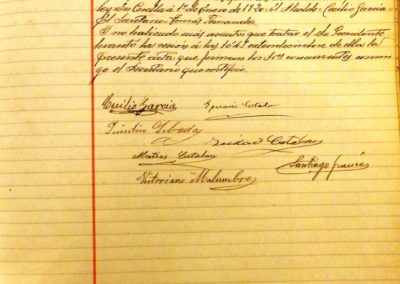 ley En Corella á 1º de Enero de 1920. El Alcalde Cecilio Garcia
El Secretario Tomás Fernandez
Y no habiendo más asuntos que tratar el Sr. Presidente
levanta la sesion á las 10 ½ extendiendose de ella la
presente acta que firman los Sres concurrentes conmi-
go el Secretario que certifico.
Cecilio Garcia
Catalan
Matias Catalan
Santiago
Victoriano Malumbres